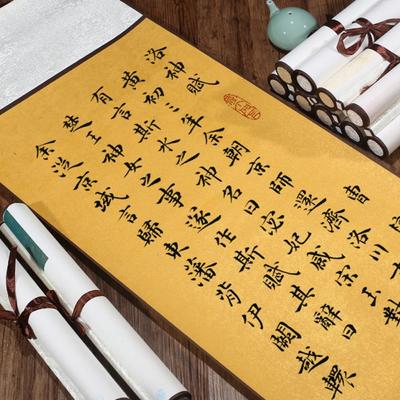 洛神賦 曹
黃初三年余朝京師還濟洛川
有言斯水之神名曰宓妃感宋玉對
楚王神女之事遂作斯賦其辭曰
余從京域言歸東藩背伊闕越轘